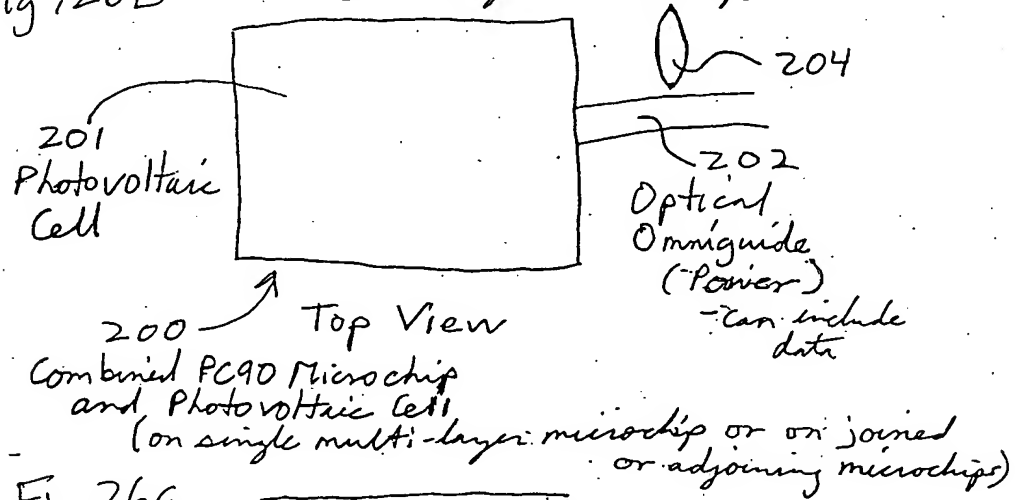 204
201
Photovoltaic
Cell
202
Optical
Omniguide
(-Power)
-can include
data
200
Top View
Combined PC90 Microchip
and Photovoltaic Cell
(on single multi-layer microchip or on joined
or adjoining microchips)